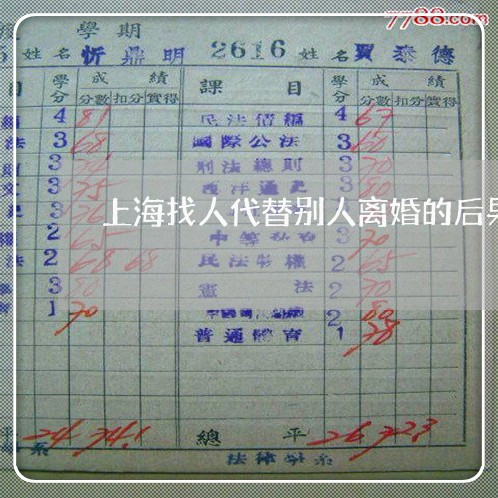 7788.com
學期
姓名 忻鼎明 2616 姓名 賈泰德
目 學分 成績 課目 學分 成績
分數 扣分 實得 分數 扣分 實得
4 81 民法債編 4 67
法 3 68 國際公法 3 60
3 刑法總則 3 70
3 75 西洋通史 3 80
3
上海找人代替别人离婚的后果
2 65 3 70
法 2 68 68 民法物權 2 65
3 80 憲法 2 70
1 70 2 80
普通體育 1 78
平 24 74.1 總平 26 72.3
系 法律學系